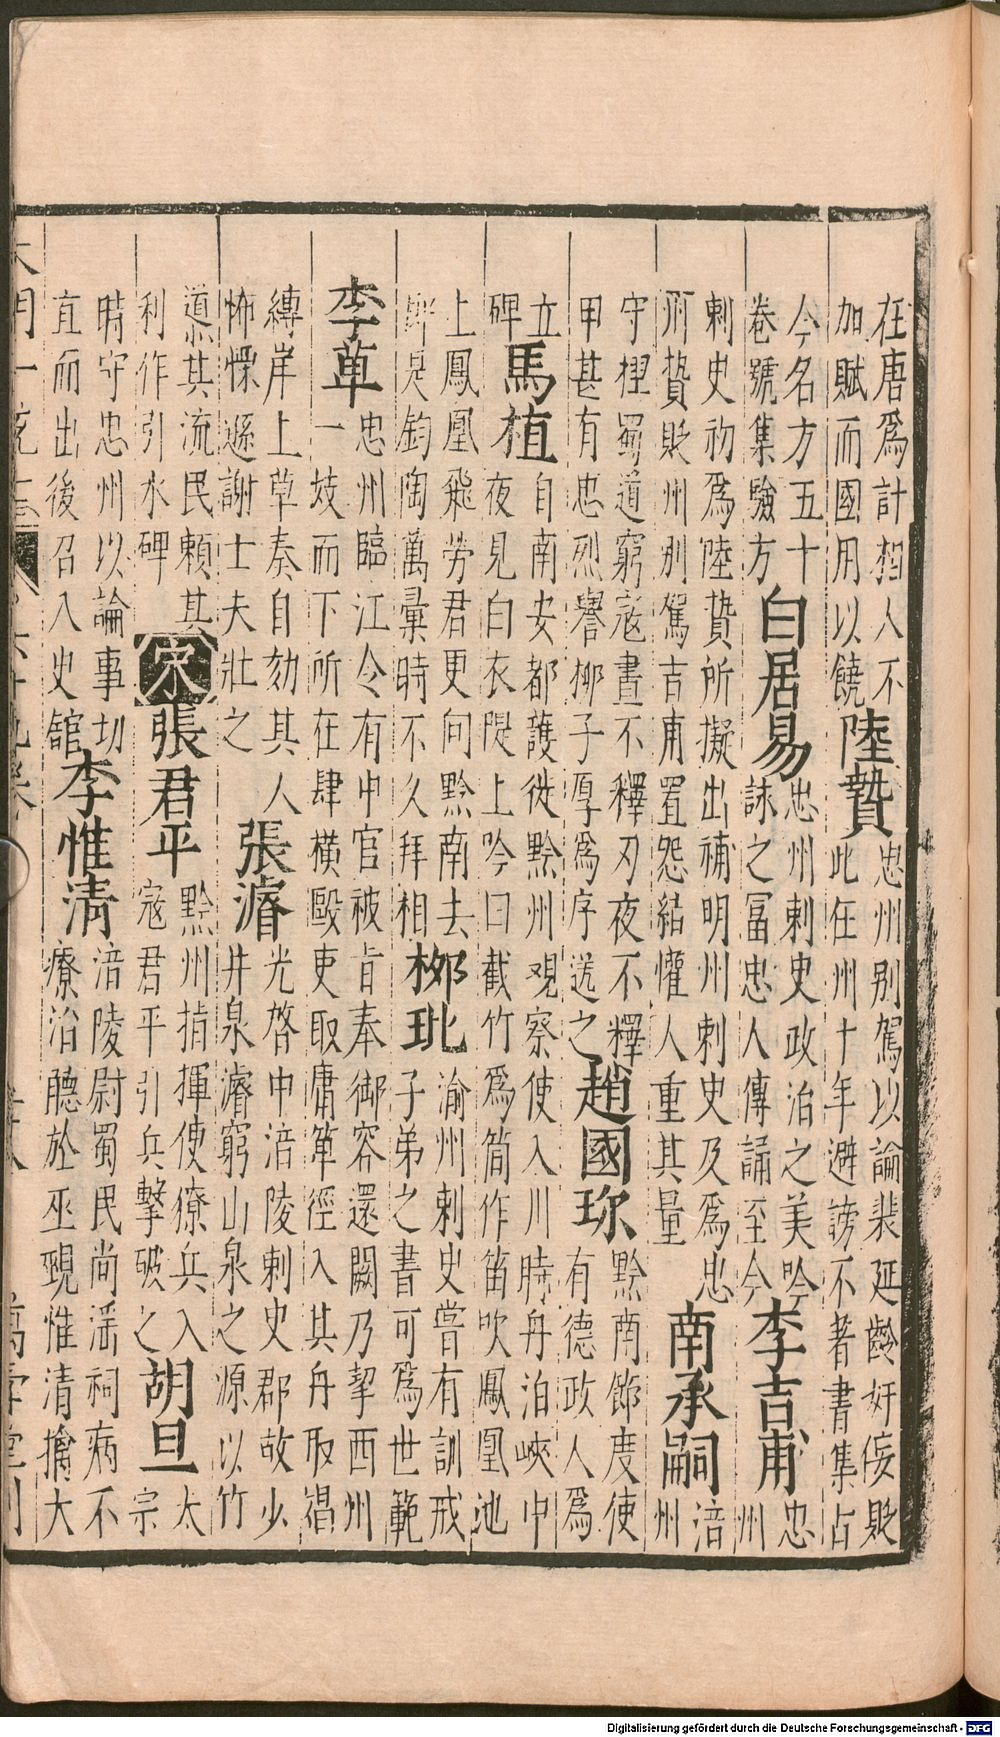 在唐爲計相人不
加賦而國用以饒
陸贄
忠州别駕以論裴延齡奸佞貶
此任州十年避謗不著書集古
今名方五十
卷號集驗方
白居易
忠州刺史政治之美吟
詠之冨忠人傳誦至今
李吉甫
忠
州
刺史初爲陸贄所擬出補明州刺史及爲忠
州贄貶州别駕吉甫置怨結懽人重其量
南承嗣
涪
州
守捏蜀道窮寇晝不釋刃夜不釋
甲甚有忠烈譽柳子厚爲序送之
趙國珎
黔南節度使
有德政人爲
立
碑
馬植
自南安都護徙黔州觀察使入川時舟泊峽中
夜見白衣隄上吟曰截竹爲筒作笛吹鳳凰池
上鳳凰飛勞君更向黔南去
卽是鈞陶萬彙時不久拜相
柳玭
渝州刺史嘗有訓戒
子弟之書可爲世範
李
忠州臨江令有中官被旨奉御容還闕乃挈西州
一妓而下所在肆橫毆吏取庸徑入其舟取禓
縳岸上奏自劾其人
怖慄遜謝士夫壯之
張濬
光啓中涪陵刺史郡故少
井泉濬窮山泉之源以竹
道其流民頼其
利作引水碑
宋
張君平
黔州指揮使僚兵入
寇君平引兵擊破之
胡旦
太
宗
時守忠州以論事切
直而出後召入史舘
李惟清
涪陵尉蜀民尚淫祠病不
療治聽於巫覡惟清擒大
萬壽堂刊
Digitalisierung gefördert durch die Deutsche Forschungsgemeinschaft - DFG